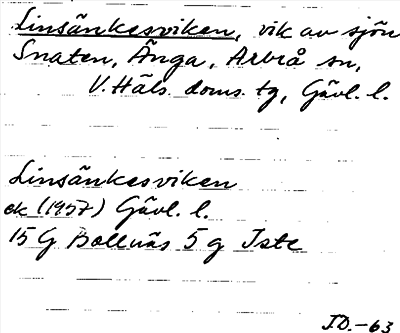 Linsänkesviken, vik av sjön
Snaten, Änga, Arbrå sn,
V. Häls. doms. tg, Gävl. l.
Linsänkesviken
ek (1957) Gävl. l.
15 G Bollnäs 5 g Iste
I D. -63